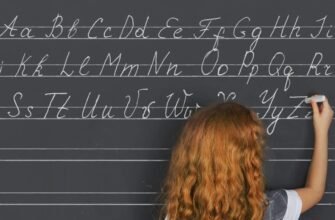 Aa Bb Cc Dd Ee Ff Gg Hh Ii
Kk Ll Mm Nn Oo Pp Qq Rr
Ss Tt Uu Vv Ww Yy Zz